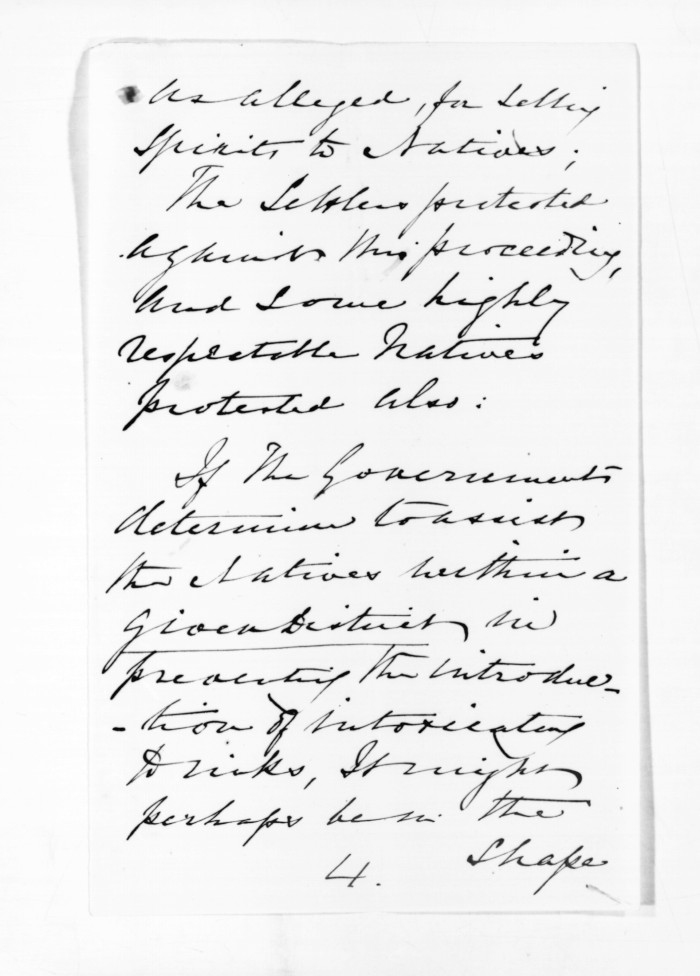 as alleged, for selling
Spirits to Natives;
The Settlers protested
against this proceeding,
and some highly
respectable Natives
protested also:
If The Government
determine to assist
the Natives within a
Given District, in
preventing the introduc-
-tion of intoxicating
Drinks, It might
perhaps be in the
Shape
4.